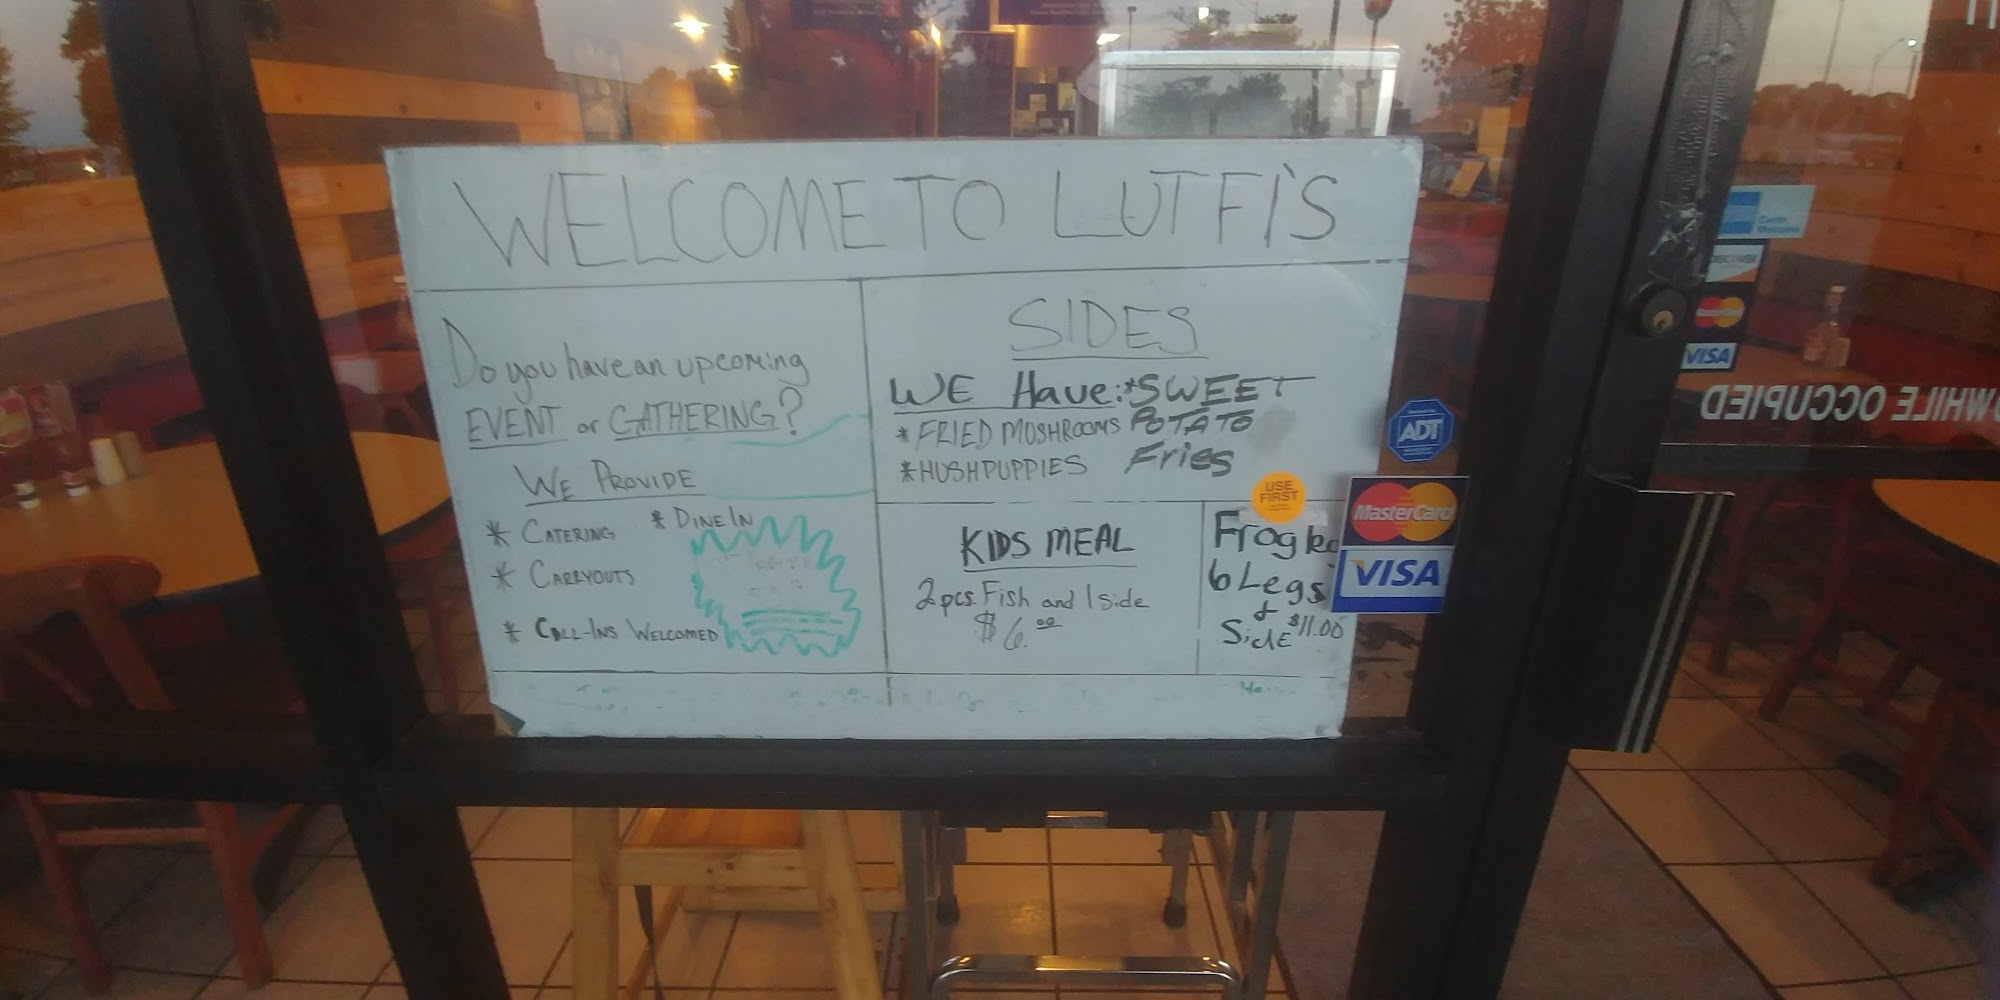 WELCOME TO LUTFI'S
Do you have an upcoming
EVENT or GATHERING?
WE PROVIDE
* CATERING
* DINE IN
* CARRYOUTS
* CALL-INS WELCOMED
SIDES
WE Have: *SWEET
POTATO
Fries
* FRIED MOSHROOMS
* HUSHPUPPIES
KIDS MEAL
2 pcs. Fish and 1 side
$6.00
Frog
6 Legs
&
Side $11.00
USE
FIRST
ADT
MasterCard
VISA
DISCOVER
MasterCard
VISA
WHILE OCCUPIED